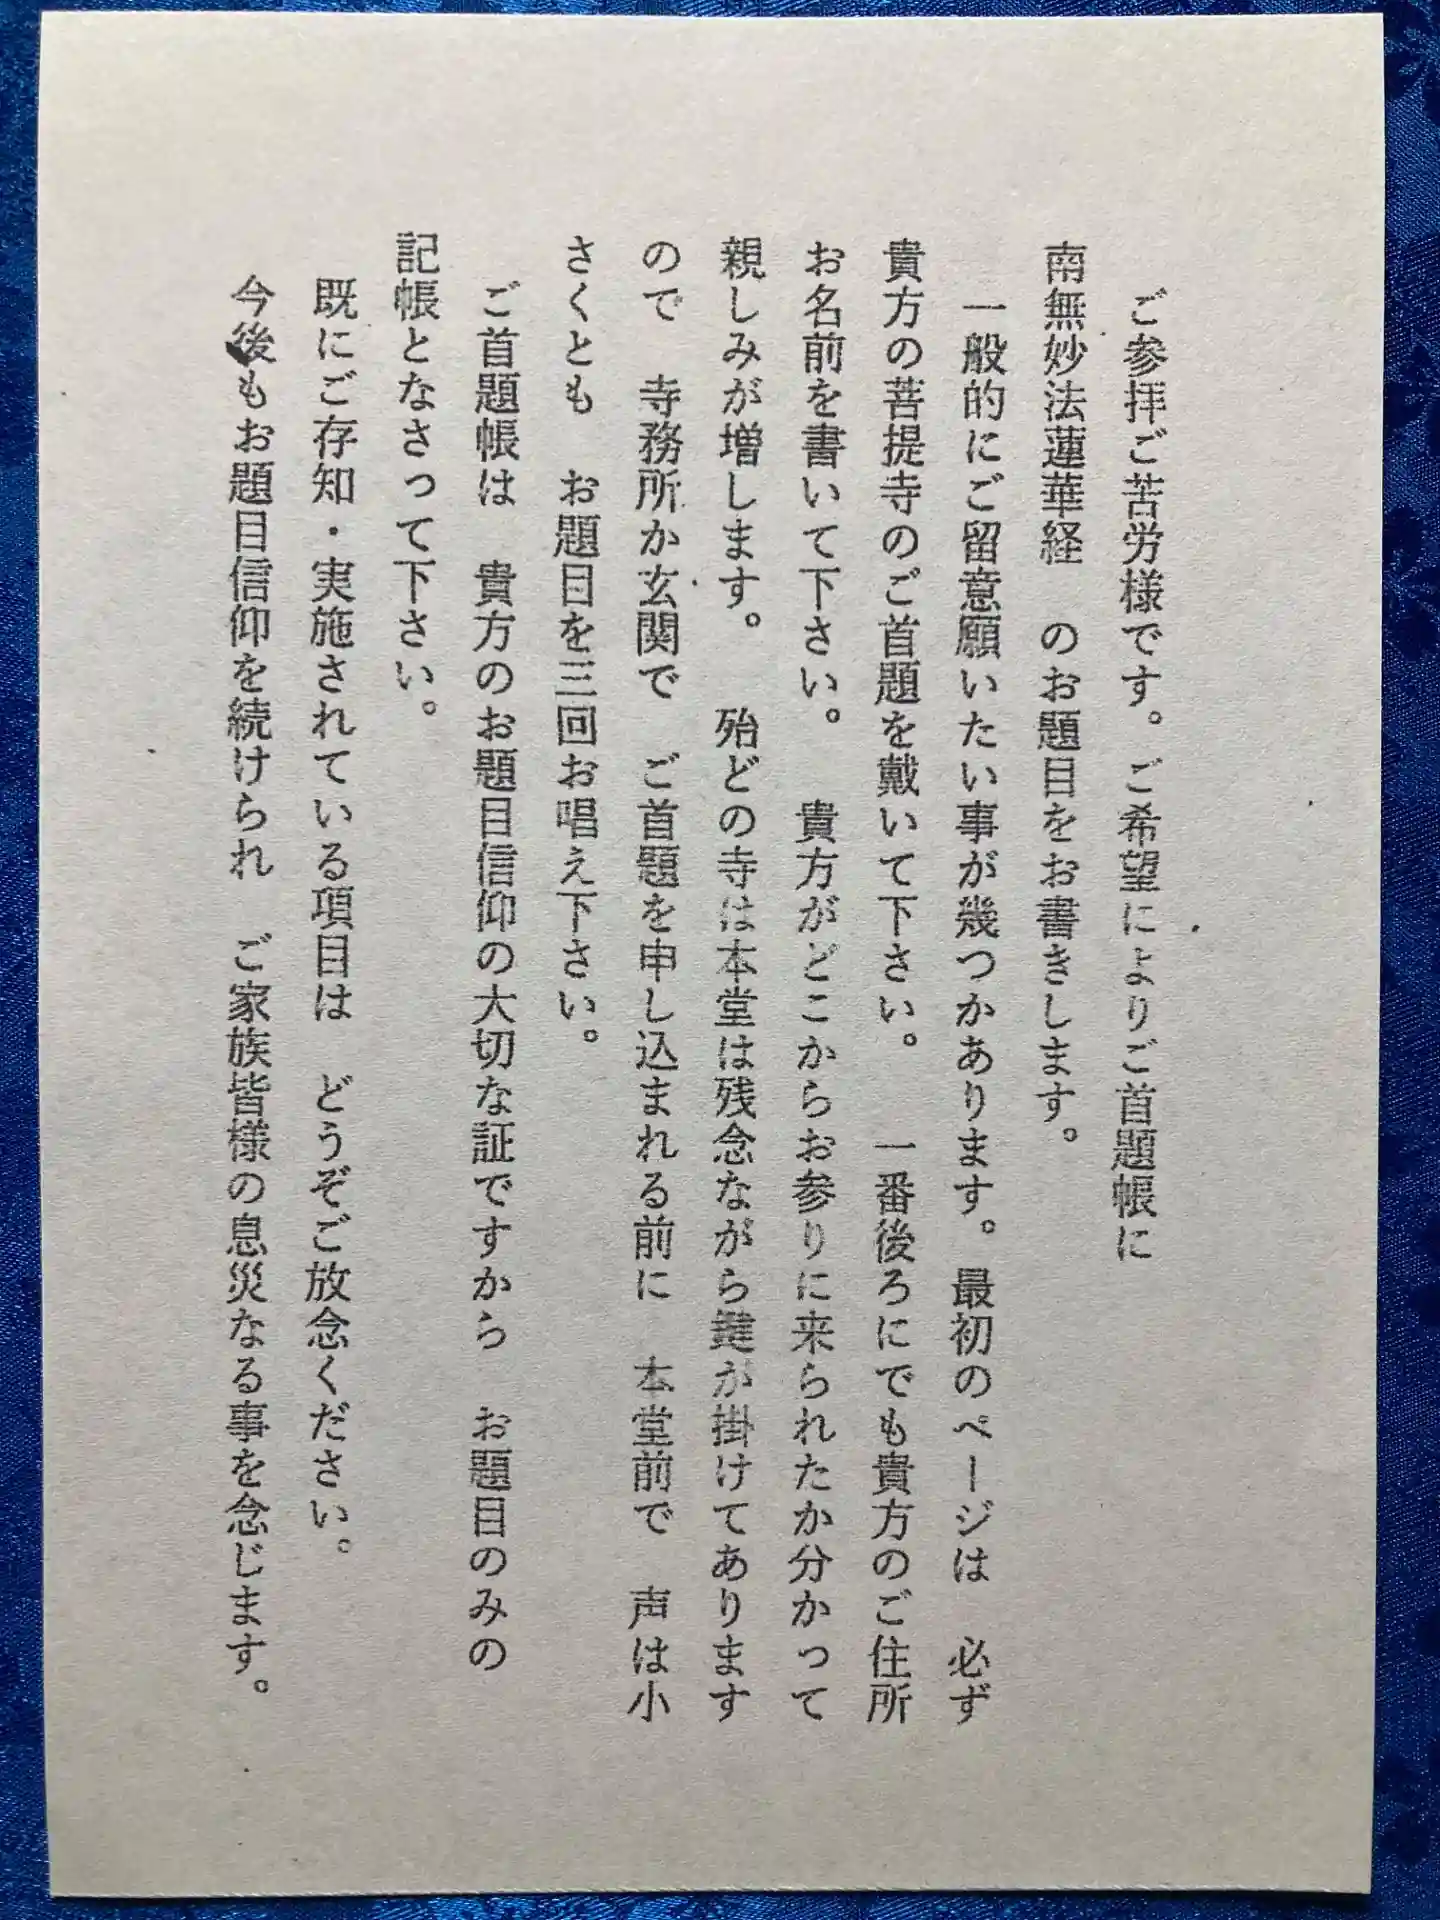 ご参拝ご苦労様です。ご希望によりご首題帳に
南無妙法蓮華経　のお題目をお書きします。
　一般的にご留意願いたい事が幾つかあります。最初のページは　必ず
貴方の菩提寺のご首題を戴いて下さい。　一番後ろにでも貴方のご住所
お名前を書いて下さい。　貴方がどこからお参りに来られたか分かって
親しみが増します。　殆どの寺は本堂は残念ながら鍵が掛けてあります
ので　寺務所か玄関で　ご首題を申し込まれる前に　本堂前で　声は小
さくとも　お題目を三回お唱え下さい。
　ご首題帳は　貴方のお題目信仰の大切な証ですから　お題目のみの
記帳となさって下さい。
　既にご存知・実施されている項目は　どうぞご放念ください。
　今後もお題目信仰を続けられ　ご家族皆様の息災なる事を念じます。